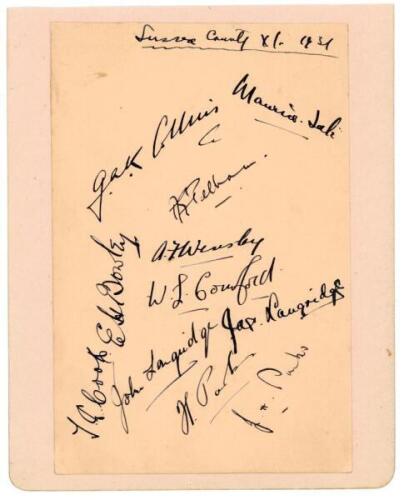 Sussex County XI. 1931
Maurice Tate
G.A.K. Collins
A F Wensley
W. L. Cornford
Jas. Langridge
John Langridge
E H Bowley
T. E. Cook
H. Parks
J. H. Parks